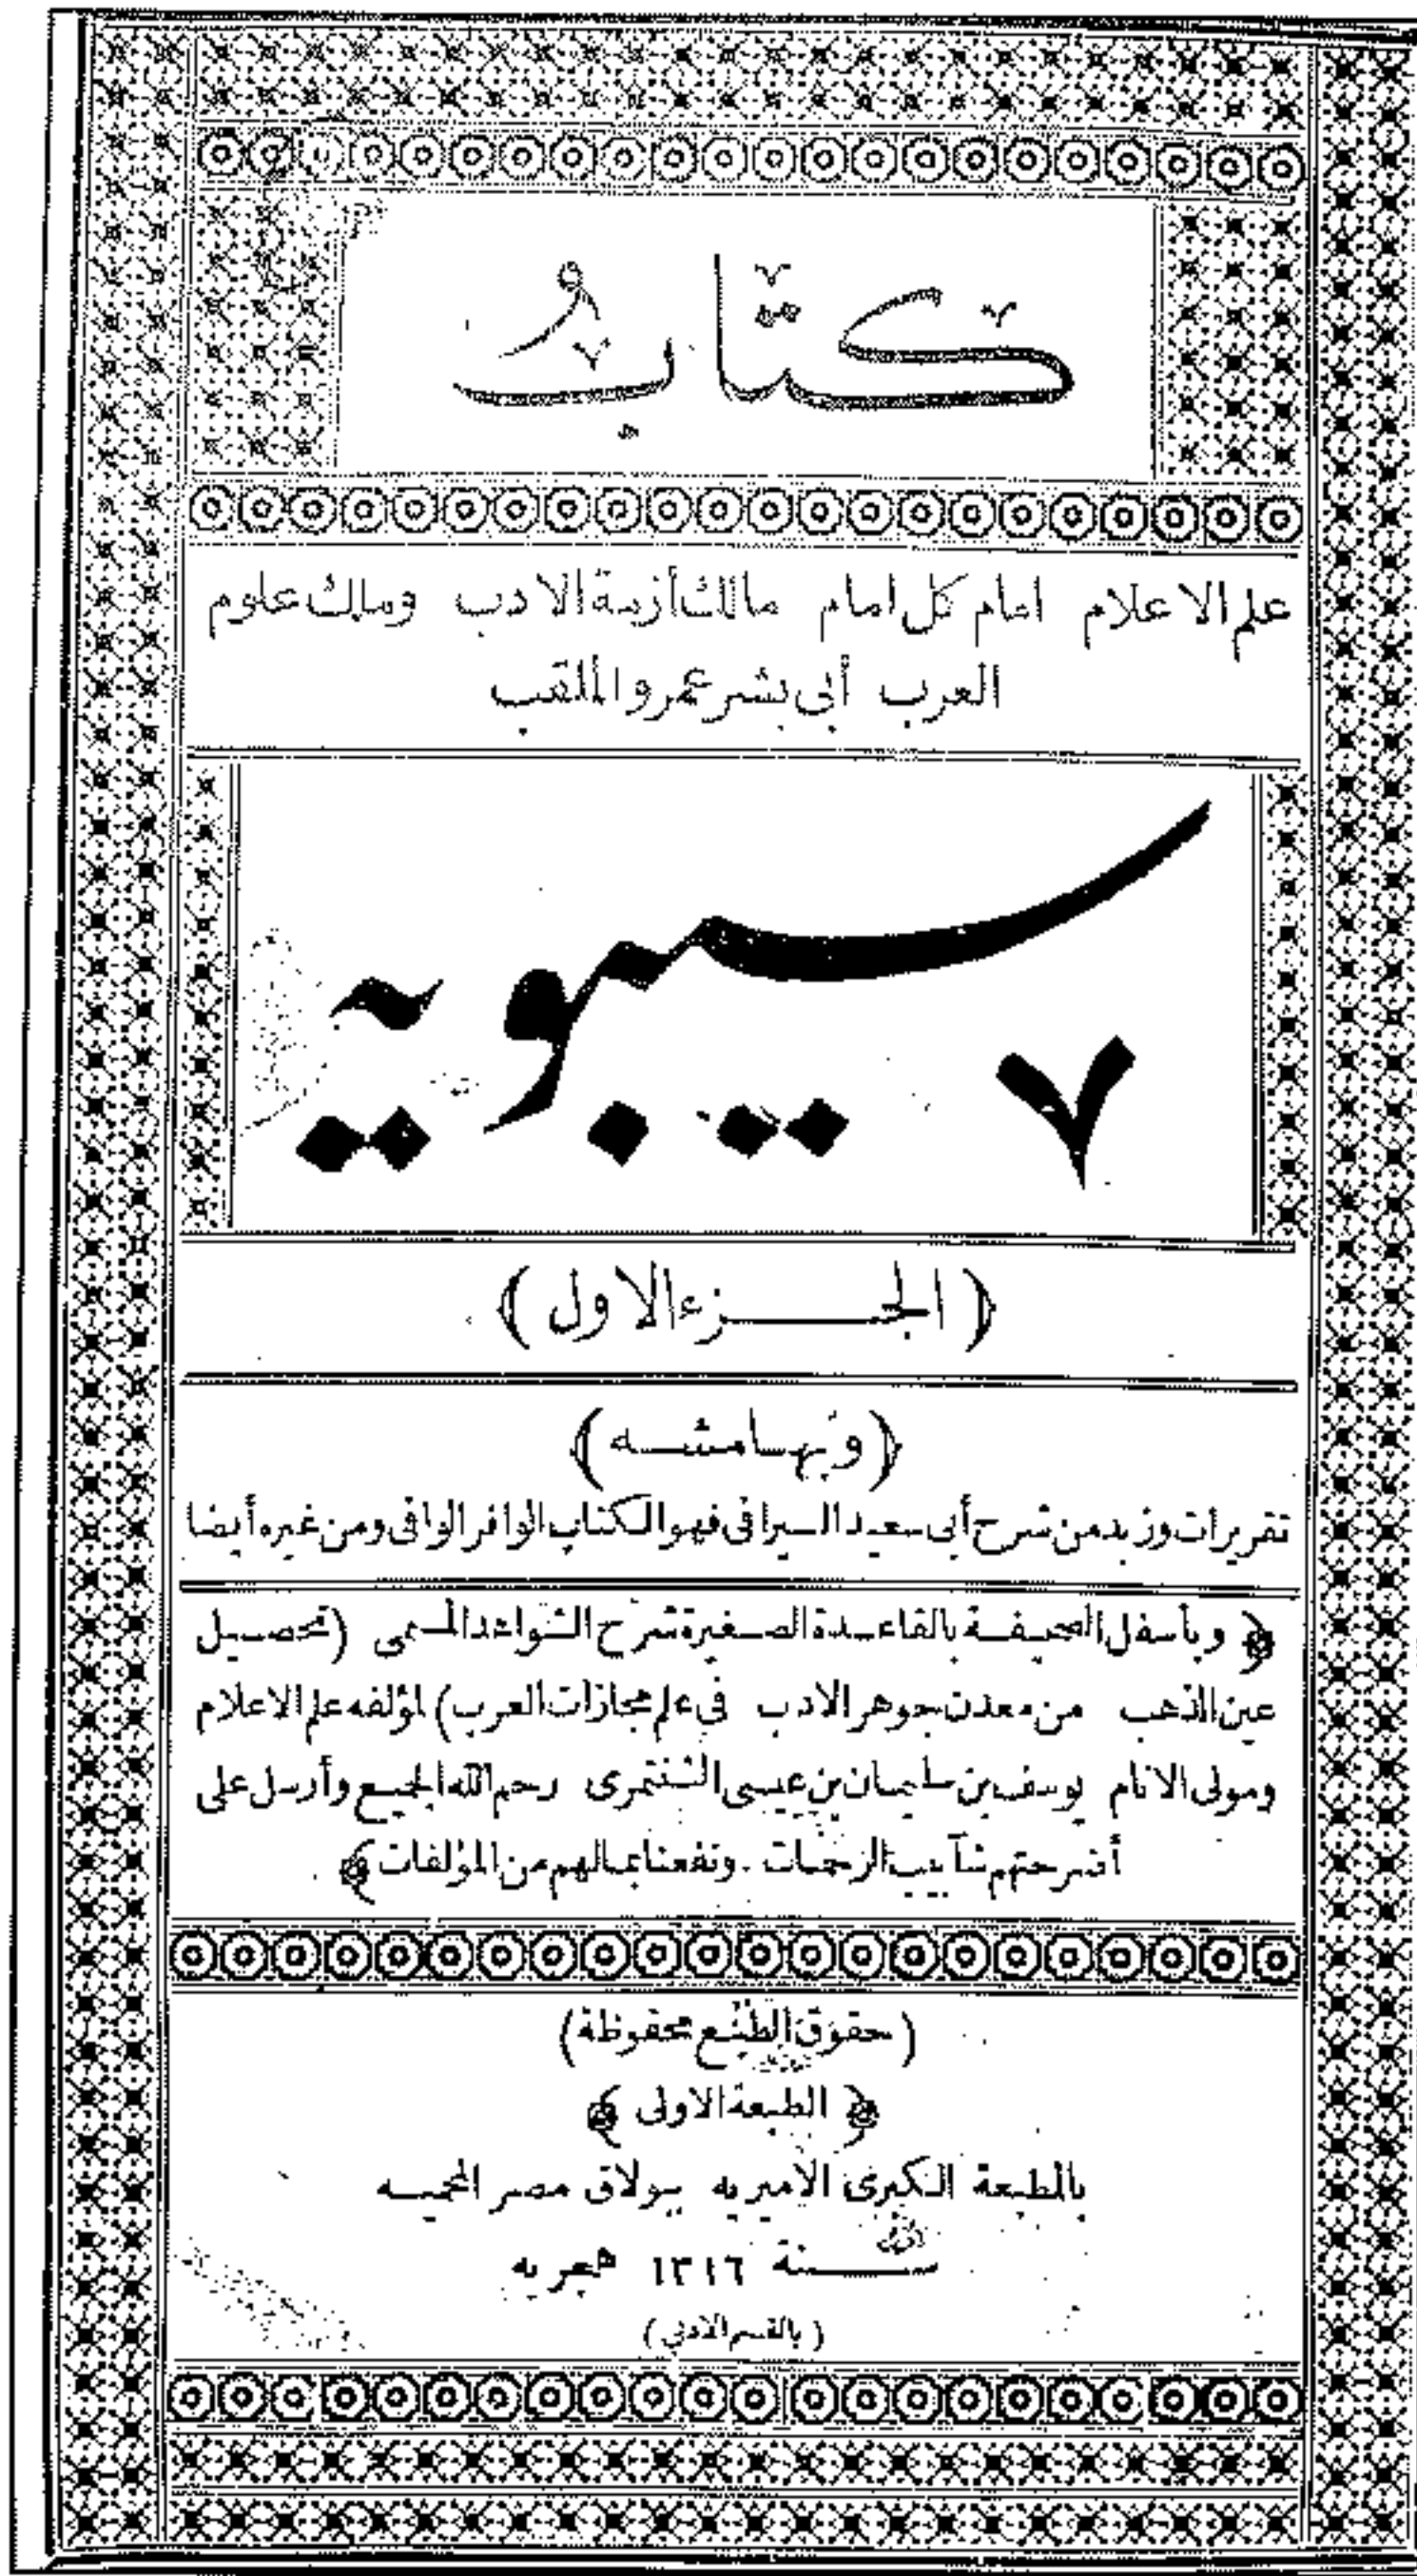 كتاب
علم الاعلام امام كل امام مالك أزمة الادب وملك علوم
العرب أبى بشر عمرو الملقب
سيبويه
(الجزء الاول)
(وبهامشه)
تقريرات وزبد من شرح أبى سعيد السيرافى فهو الكتاب الوافر الوافى ومن غيره أيضا
﴿ وبأسفل الصحيفة بالقاعدة الصغيرة شرح الشواهد المسمى (تحصيل
عين الذهب من معدن جوهر الادب فى علم مجازات العرب) لمؤلفه علم الاعلام
ومولى الانام يوسف بن سليمان بن عيسى الشنتمرى رحم الله الجميع وأرسل على
أضرحتهم شآبيب الرحمات ونفعنا بما لهم من المؤلفات ﴾
(حقوق الطبع محفوظة)
﴿ الطبعة الاولى ﴾
بالمطبعة الكبرى الاميريه ببولاق مصر المحميه
سنة ١٣١٦ هجريه
(بالقسم الادبى)